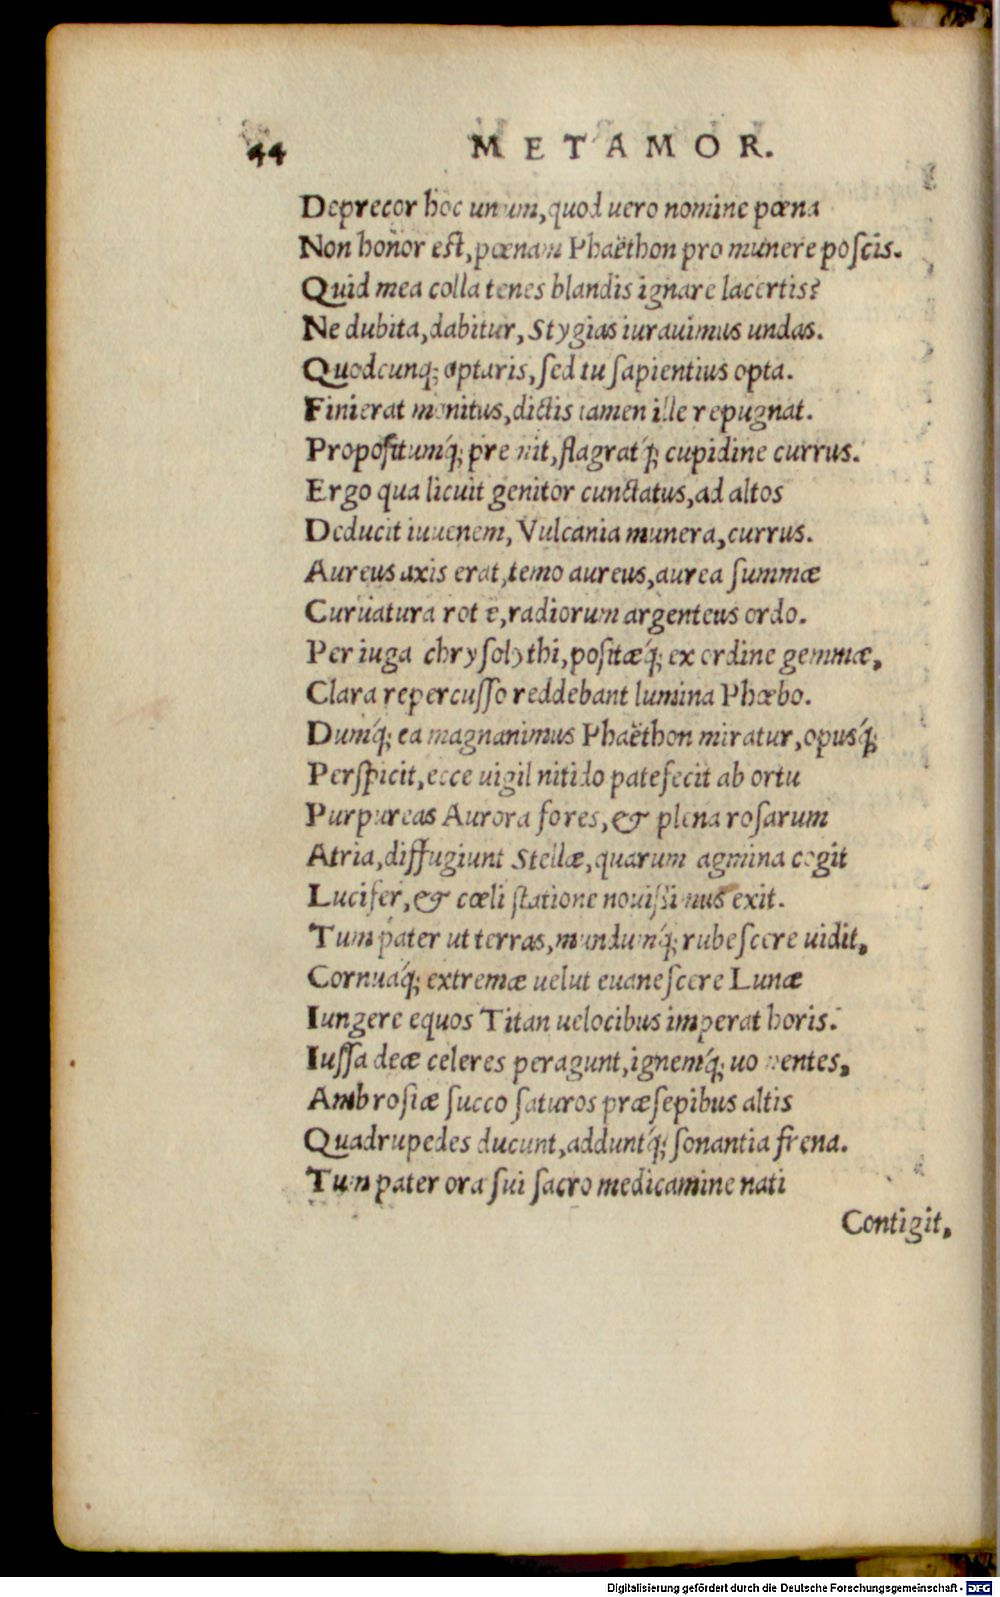 44 METAMOR.
Deprecor hoc unum, quod uero nomine pœna
Non honor est, pœnam Phaëthon pro munere poscis.
Quid mea colla tenes blandis ignare lacertis?
Ne dubita, dabitur, Stygias iurauimus undas.
Quodcunq; optaris, sed tu sapientius opta.
Finierat monitus, dictis tamen ille repugnat.
Propositumq́; premit, flagratq́; cupidine currus.
Ergo qua licuit genitor cunctatus, ad altos
Deducit iuuenem, Vulcania munera, currus.
Aureus axis erat, temo aureus, aurea summæ
Curuatura rotæ, radiorum argenteus ordo.
Per iuga chrysolythi, positæq́; ex ordine gemmæ,
Clara repercusso reddebant lumina Phœbo.
Dumq́; ea magnanimus Phaëthon miratur, opusq́;
Perspicit, ecce uigil nitido patefecit ab ortu
Purpureas Aurora fores, & plena rosarum
Atria, diffugiunt Stellæ, quarum agmina cogit
Lucifer, & cœli statione nouissimus exit.
Tum pater ut terras, mundumq́; rubescere uidit,
Cornuaq́; extremæ uelut euanescere Lunæ
Iungere equos Titan uelocibus imperat horis.
Iussa deæ celeres peragunt, ignemq́; uomentes,
Ambrosiæ succo saturos præsepibus altis
Quadrupedes ducunt, adduntq́; sonantia frena.
Tum pater ora sui sacro medicamine nati
Contigit,
Digitalisierung gefördert durch die Deutsche Forschungsgemeinschaft - DFG